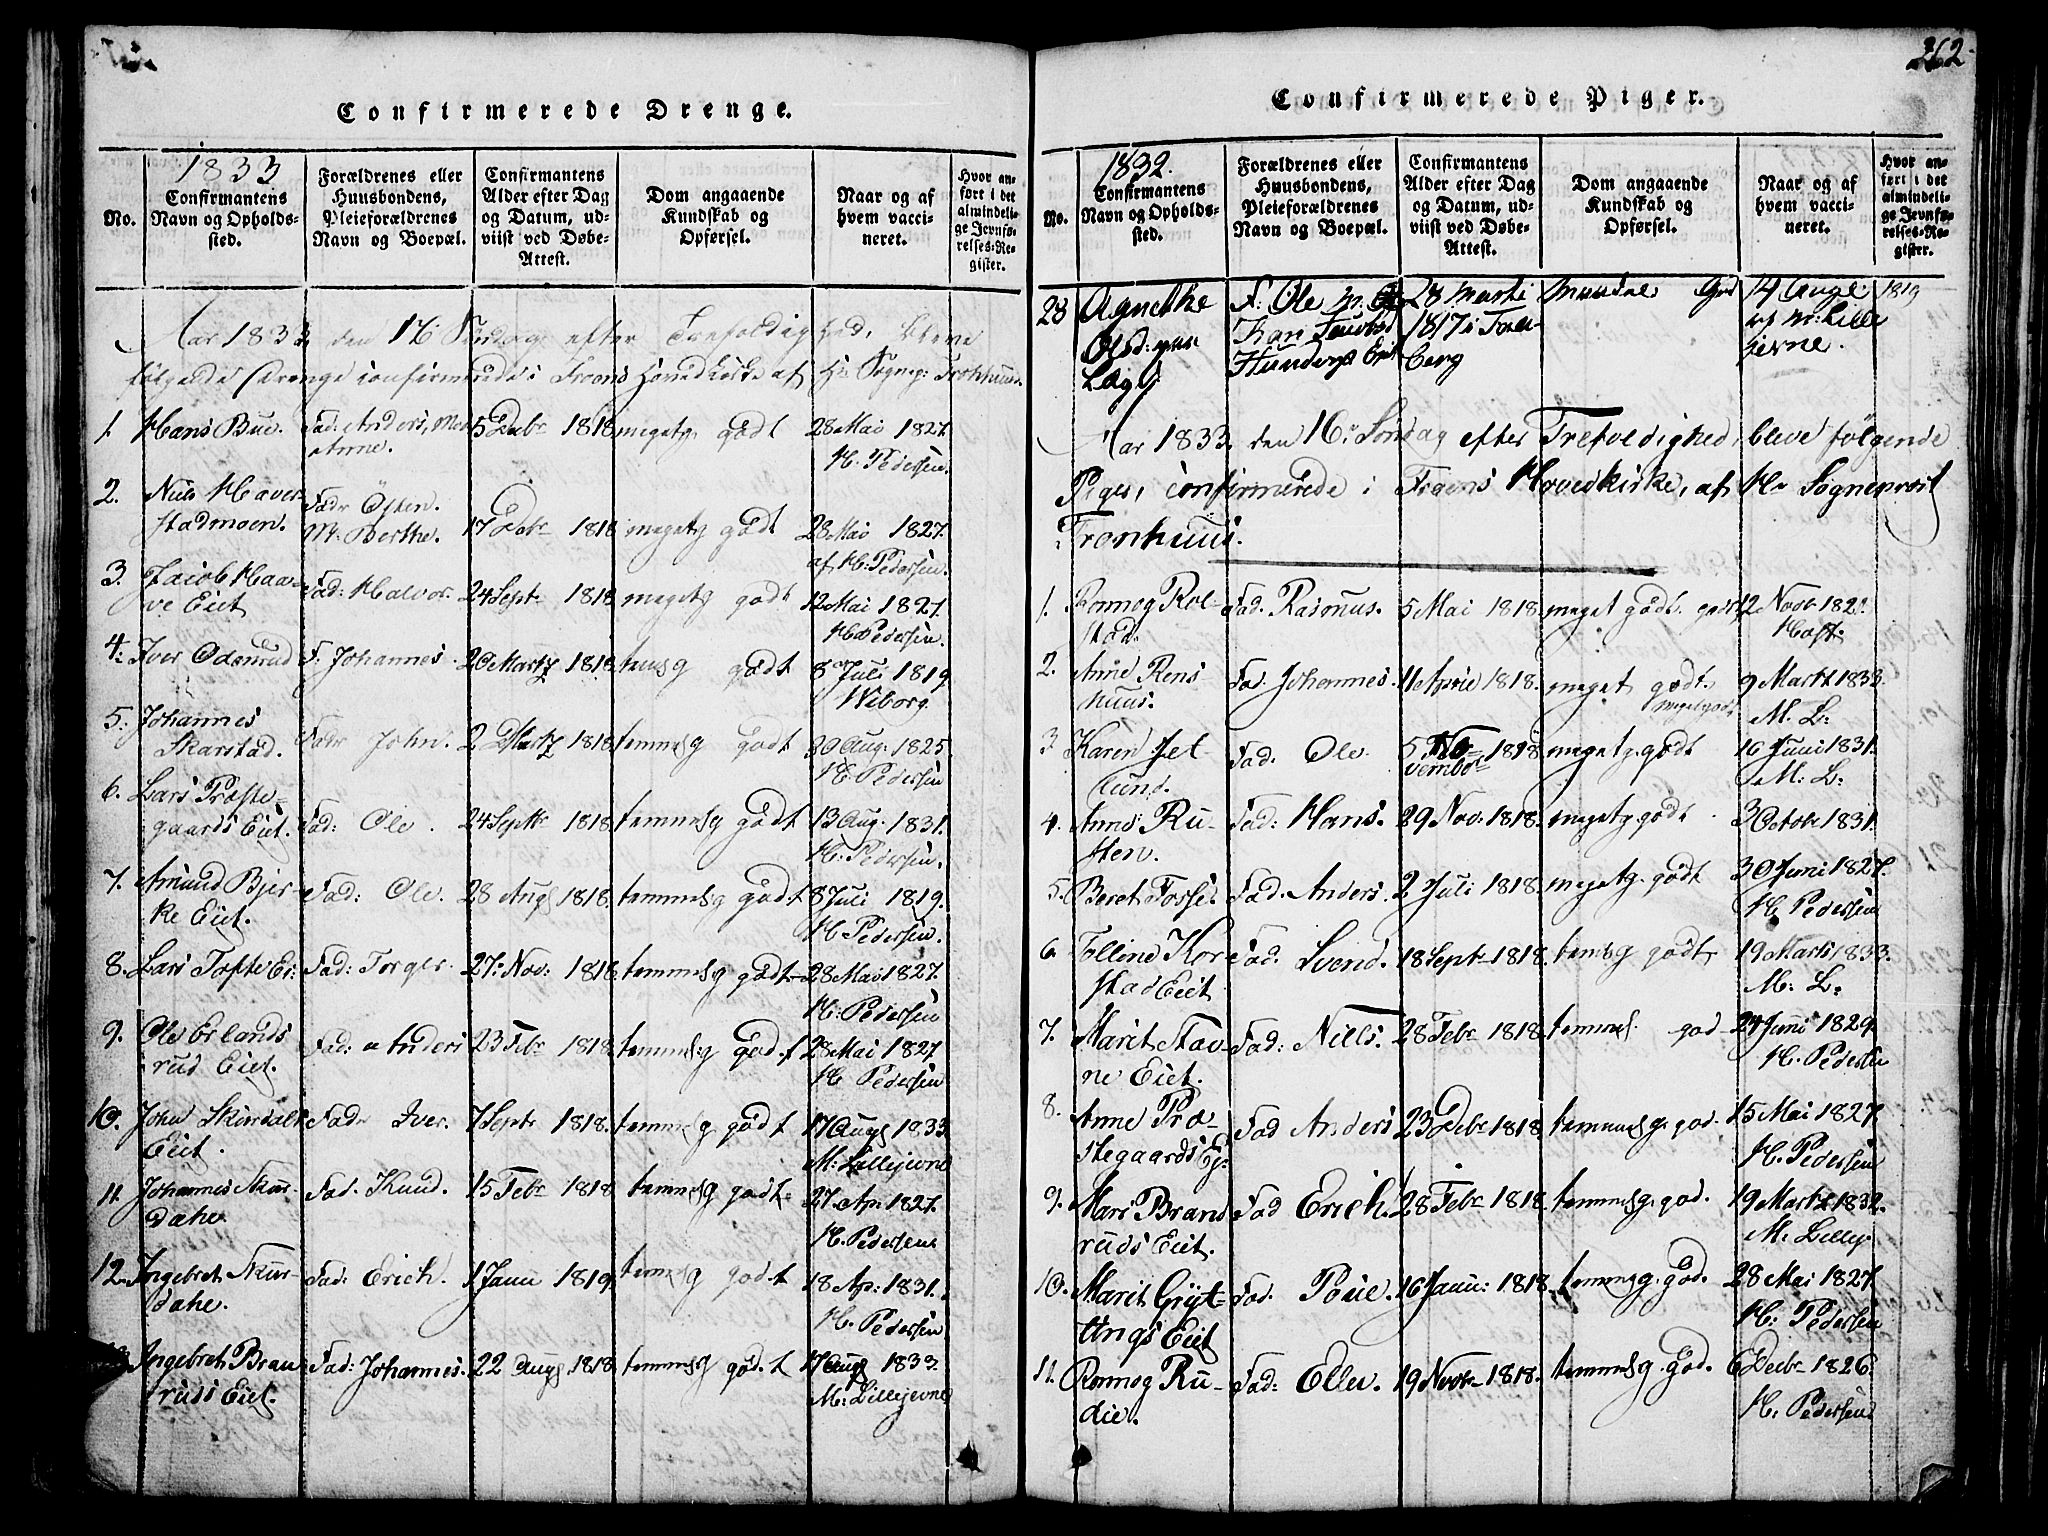 Confirmerede Drenge.
1833
No.
Confirmantens
Navn og Opholds-
sted.
Forældrenes eller
Huusbondens,
Pleieforældrenes
Navn og Boepæl.
Confirmantens
Alder efter Dag
og Datum, ud-
viist ved Døbe-
Attest.
Dom angaaende
Kundskab og
Opførsel.
Naar og af
hvem vacci-
neret.
Hvor an-
ført i det
almindeli-
ge Jevnfø-
relses-Re-
gister.
Aar 1833, den 16 Søndag efter Trefoldighed, bleve
følgende Drenge confirmerede i Frons Hovedkirke af Hr Sognep: Fronhuus.
1. Hans Bue. Fad: Anders, Mod Anne. 5 Debr 1818 megetg godt 28 Mai 1827. H. Pedersen.
2. Niels Haverstadmoen. Fadr Østen. M: Berthe. 17 Debr 1818 megetg godt 28 Mai 1827. af H: Pedersen.
3. Jacob Haave Eiet Fad: Halvor. 24 Sept 1818 megetg godt 12 Mai 1827. H Pedersen.
4. Iver Odenrud F. Johannes 20 Martz 1818 temsg godt 8 Juli 1819 Wiborg
5. Johannes Skarstad. Fadr John. 2 Martz 1818 temmelsg godt 30 Aug. 1825 H. Pedersen
6. Lars Præstegaards Eiet. Fad: Ole. 24 Septbr 1818 temmelsg godt 13 Aug. 1831. H. Pedersen.
7. Amund Bjerke Eiet. Fad: Ole. 28 Aug 1818. temmelsg godt 8 Juli 1819. H Pedersen.
8. Lars Tofte Ei: Fad: Torger. 27. Nov: 1818 temmelsg godt 28 Mai 1827. H. Pedersen
9. Ole Erlandsrud Eiet. Fad: Anders 23 Febr 1818. temmelsg godt 28 Mai 1827 H Pedersen
10. John Skurdals Eiet. Fadr Iver. 7 Septr 1818. temmelsg godt 17 Aug 1833 M: Lillejevne
11. Johannes Skurdahe Fad. Knud. 15 Febr 1818 temmelsg godt 27. Ap: 1827. H. Pedersen
12. Ingebret Skurdahe. Fad: Erich. 1 Janu 1819. temmelsg godt 18 Ap: 1831. H. Pedersen
Ingebret Branruds Eiet. Fad: Johannes. 22 Aug 1818 temmelsg godt 17 Aug 1833 M: Lillejevne
362
Confirmerede Piger.
1832.
No.
Confirmantens
Navn og Opholds-
sted.
Forældrenes eller
Huusbondens,
Pleieforældrenes
Navn og Boepæl.
Confirmantens
Alder efter Dag
og Datum, ud-
viist ved Døbe-
Attest.
Dom angaaende
Kundskab og
Opførsel.
Naar og af
hvem vacci-
neret.
Hvor an-
ført i det
almindeli-
ge Jevnfø-
relses-Re-
gister.
28 Agnethe Olsd: F: Ole Kari Hundorps Eiet 28 Marti 1817 i god 14 Aug af M: Lillejevne. 1819
Aar 1833, den 16de Søndag efter Trefoldighed, bleve følgende
Piger, confirmerede i Frons Hovedkirke, af Hr Sognepræst
Fronhuus.
1. Ronnog Rolstad. Fad. Rasmus. 5 Mai 1818 meget godt. godt 12 Novbr 182 Hoft
2. Anne Renshuus. Fad. Johannes. 11 Aprie 1818. meget godt. megetgodt 9 Marti 1833. M. L:
3. Karen Jetlund. Fad: Ole. 5 November 1818 megetg. godt 16 Juni 1831. M: L:
4. Anne Rusten. Fad: Hans. 29 Nov: 1818. megetg godt. 3 Octobr 1831.
5. Beret Fosse. Fad. Anders. 2 Juli 1818 megetg. godt 30 Juni 1827. H. Pedersen
6. Elline Korstad Eiet Fad. Svend. 18 Sept 1818. temsg godt 19 Marts 1833. M: L:
7. Marit Stavne Eiet. Fad: Niels. 28 Febr 1818 temmels. god 24 Juni 1829. H. Pedersen
8. Anne Præstegaards Ej: Fad Anders 23 Debr 1818. temmelsg. god. 15 Mai 1827. H. Pedersen
9. Mari Brandruds Eiet. Fad Erich. 28 Febr 1818. temmelsg. god. 19 Martz 1832. M. Lillej
10. Marit Gryttings Eiet Fad. Poüe. 16 Janu: 1818. temmsg. god. 28 Mai 1827. H: Pedersen
11. Ronnog Rudie. Fad: Ellev. 19 Novbr 1818. temmelsg. god. 6 Decbr 1826. H: Pedersen